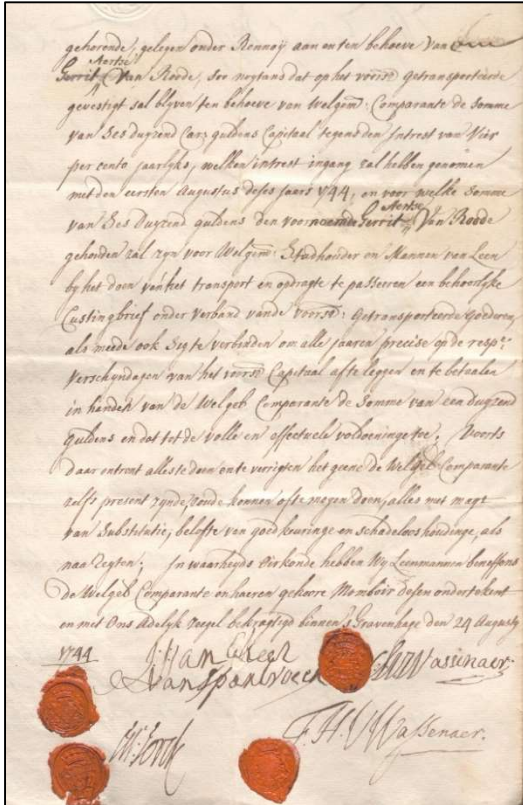 gehorende, gelegen onder Rennoij aan en ten behoeve van
Aertze
Gerrit van Roode, soo nogtans dat op het voorsz getransporteerde
gevestigt sal blyven ten behoeve van Welgem: Comparante de Somme
van Ses duyzend Car: guldens Capitaal tegens den Intrest van Vier
per cento jaarlyks, welken intrest ingang zal hebben genomen
met den eersten Augustus deses Jaars 1744, en voor welke Somme
Aertze
van Ses Duyzend guldens den voornoemden Gerrit van Roode
gehouden zal zyn voor Welgem: Stadhouder en Mannen van Leen
by het doen van het transport en opdragte te passeeren een behoorlyke
Custingbrief onder verband vande voorsz: getransporteerde goederen,
als meede ook Sig te verbinden om alle jaaren precise op de resp:
verschyndagen van het voorsz Capitaal afte leggen en te betaalen
in handen van de Welgeb Comparante de Somme van een duyzend
guldens en dat tot de volle en effectuele voldoeninge toe; Voorts
daar entrent alles te doen en te verrigten het geene de Welgeb Comparante
zelfs present zynde, zoude konnen ofte mogen doen, alles met magt
van Substitutie, belofte van goedkeuringe en schadeloshoudinge, als
naa regten; In waarheyds oirkonde hebben Wy Leenmannen beneffens
de Welgeb Comparante en haeren gekooren Momboir desen ondertekent
en met Ons Adelyk Zegel bekragtigt binnen 's Gravenhage den 24 Augusty
1744
van Wassenaer.
F. H. V Wassenaer.